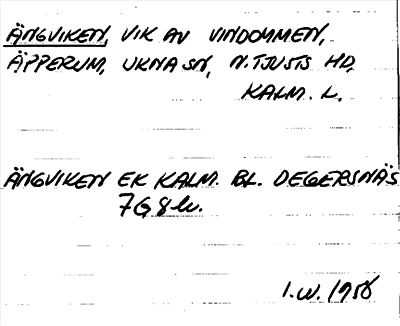 ÄNGVIKEN, VIK AV VINDOMMEN,
ÄPPERUM, UKNA SN, N. TJUSTS HD,
KALM. L.
ÄNGVIKEN EK KALM. BL. DEGERSNÄS
7G 8h.
I.W. 1958